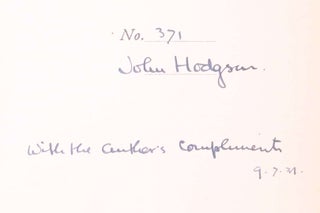 No. 371
John Hodgson.
With the author's Compliments
9.7.31.